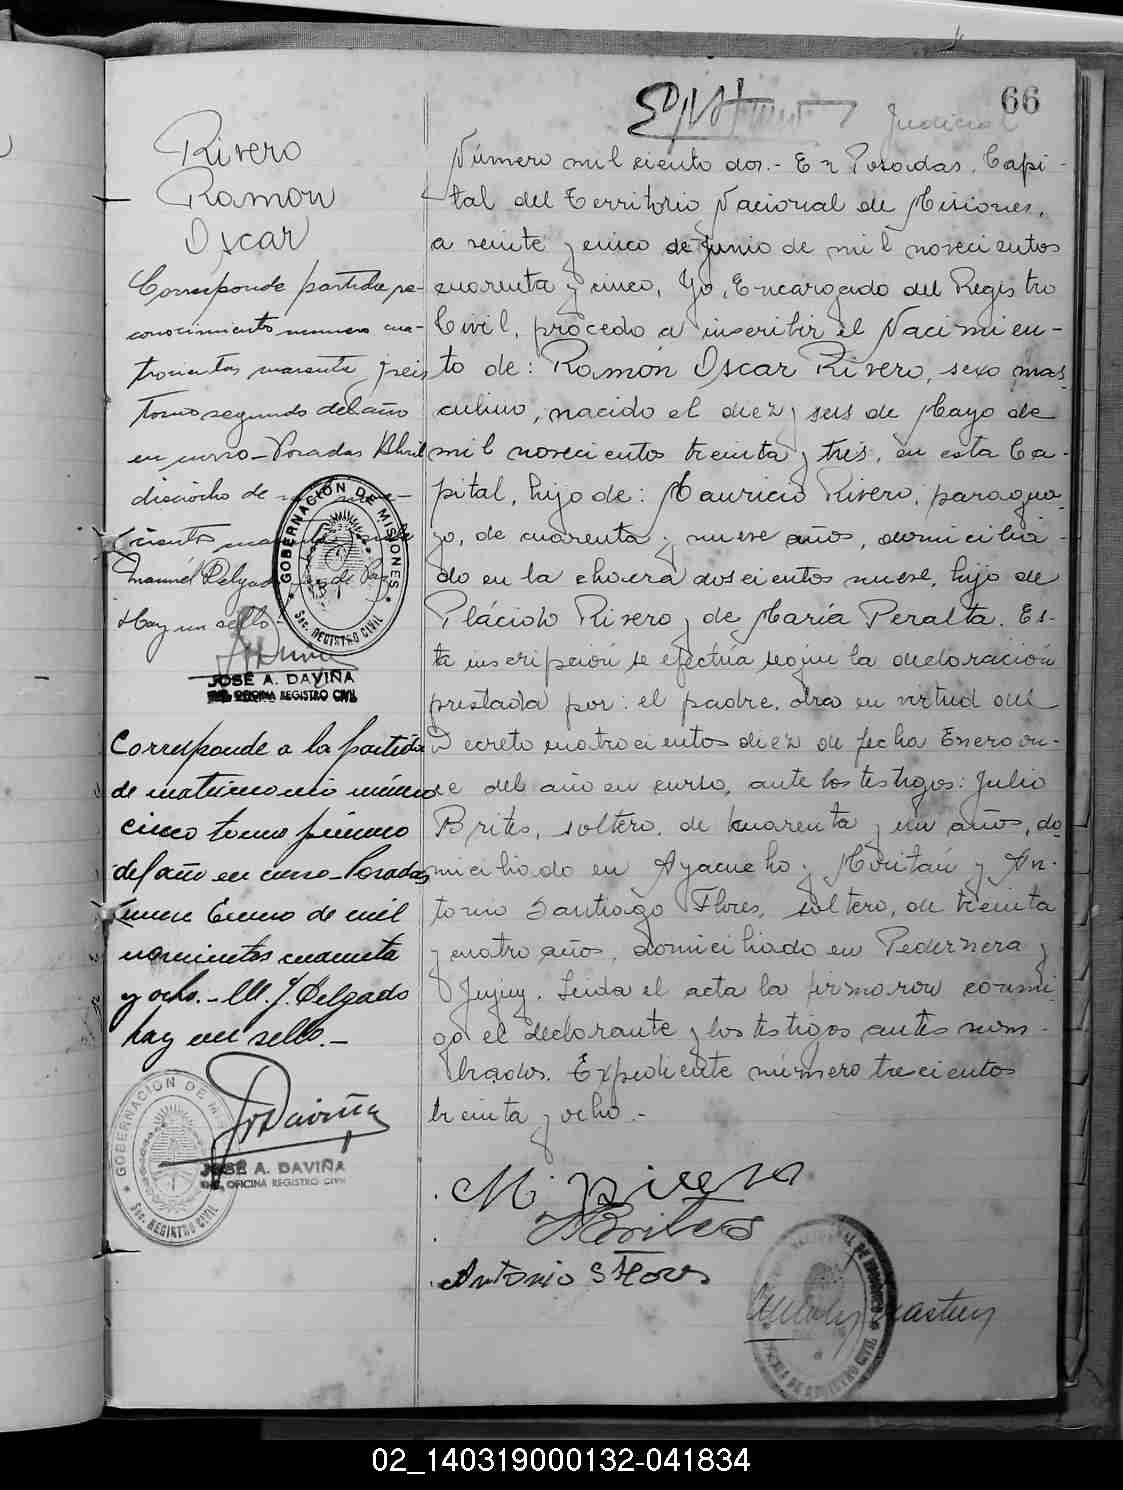 66
Judicial
Rivero
Ramón
Oscar
Corresponde partida re-
conocimiento numero cua-
trocientos
tomo segundo del año
en curso – Posadas Abril
dieciocho de
cientos
Manuel Delgado
Hay un sello
GOBERNACIÓN DE MISIONES
Sec. REGISTRO CIVIL
JOSÉ A. DAVIÑA
ENC. OFICINA REGISTRO CIVIL
Corresponde a la partida
de matrimonio número
cinco tomo primero
del año en curso – Posadas
Enero de mil
novecientos cuarenta
y ocho. – M. J. Delgado
hay un sello. –
Daviña
GOBERNACIÓN DE MISIONES
Sec. REGISTRO CIVIL
JOSÉ A. DAVIÑA
ENC. OFICINA REGISTRO CIVIL
Número mil ciento dos. - En Posadas, Capi-
tal del Territorio Nacional de Misiones,
a veinte y cinco de junio de mil novecientos
cuarenta y cinco, Yo, Encargado del Registro
Civil, procedo a inscribir el Nacimien-
to de: Ramón Oscar Rivero, sexo mas-
culino, nacido el diez y seis de Mayo de
mil novecientos treinta y tres, en esta Ca-
pital, hijo de: Mauricio Rivero, paragua-
yo, de cuarenta y nueve años, domicilia-
do en la chacra doscientos nueve, hijo de
Plácido Rivero y de María Peralta. Es-
ta inscripción se efectúa según la declaración
prestada por: el padre, obra en virtud del
Decreto cuatrocientos diez de fecha Enero on-
ce del año en curso, ante los testigos: Julio
Brites, soltero, de kuarenta y un años, do-
miciliado en Ayacucho y Moritán y An-
tonio Santiago Flores, soltero, de treinta
y cuatro años, domiciliado en Pedernera y
Jujuy. Leida el acta la firmaron conmi-
go el declarante y los testigos antes nom-
brados. Expediente número trescientos
treinta y ocho. -
M. Rivero
J Brites
Antonio S Flores
REGISTRO CIVIL
02_140319000132-041834